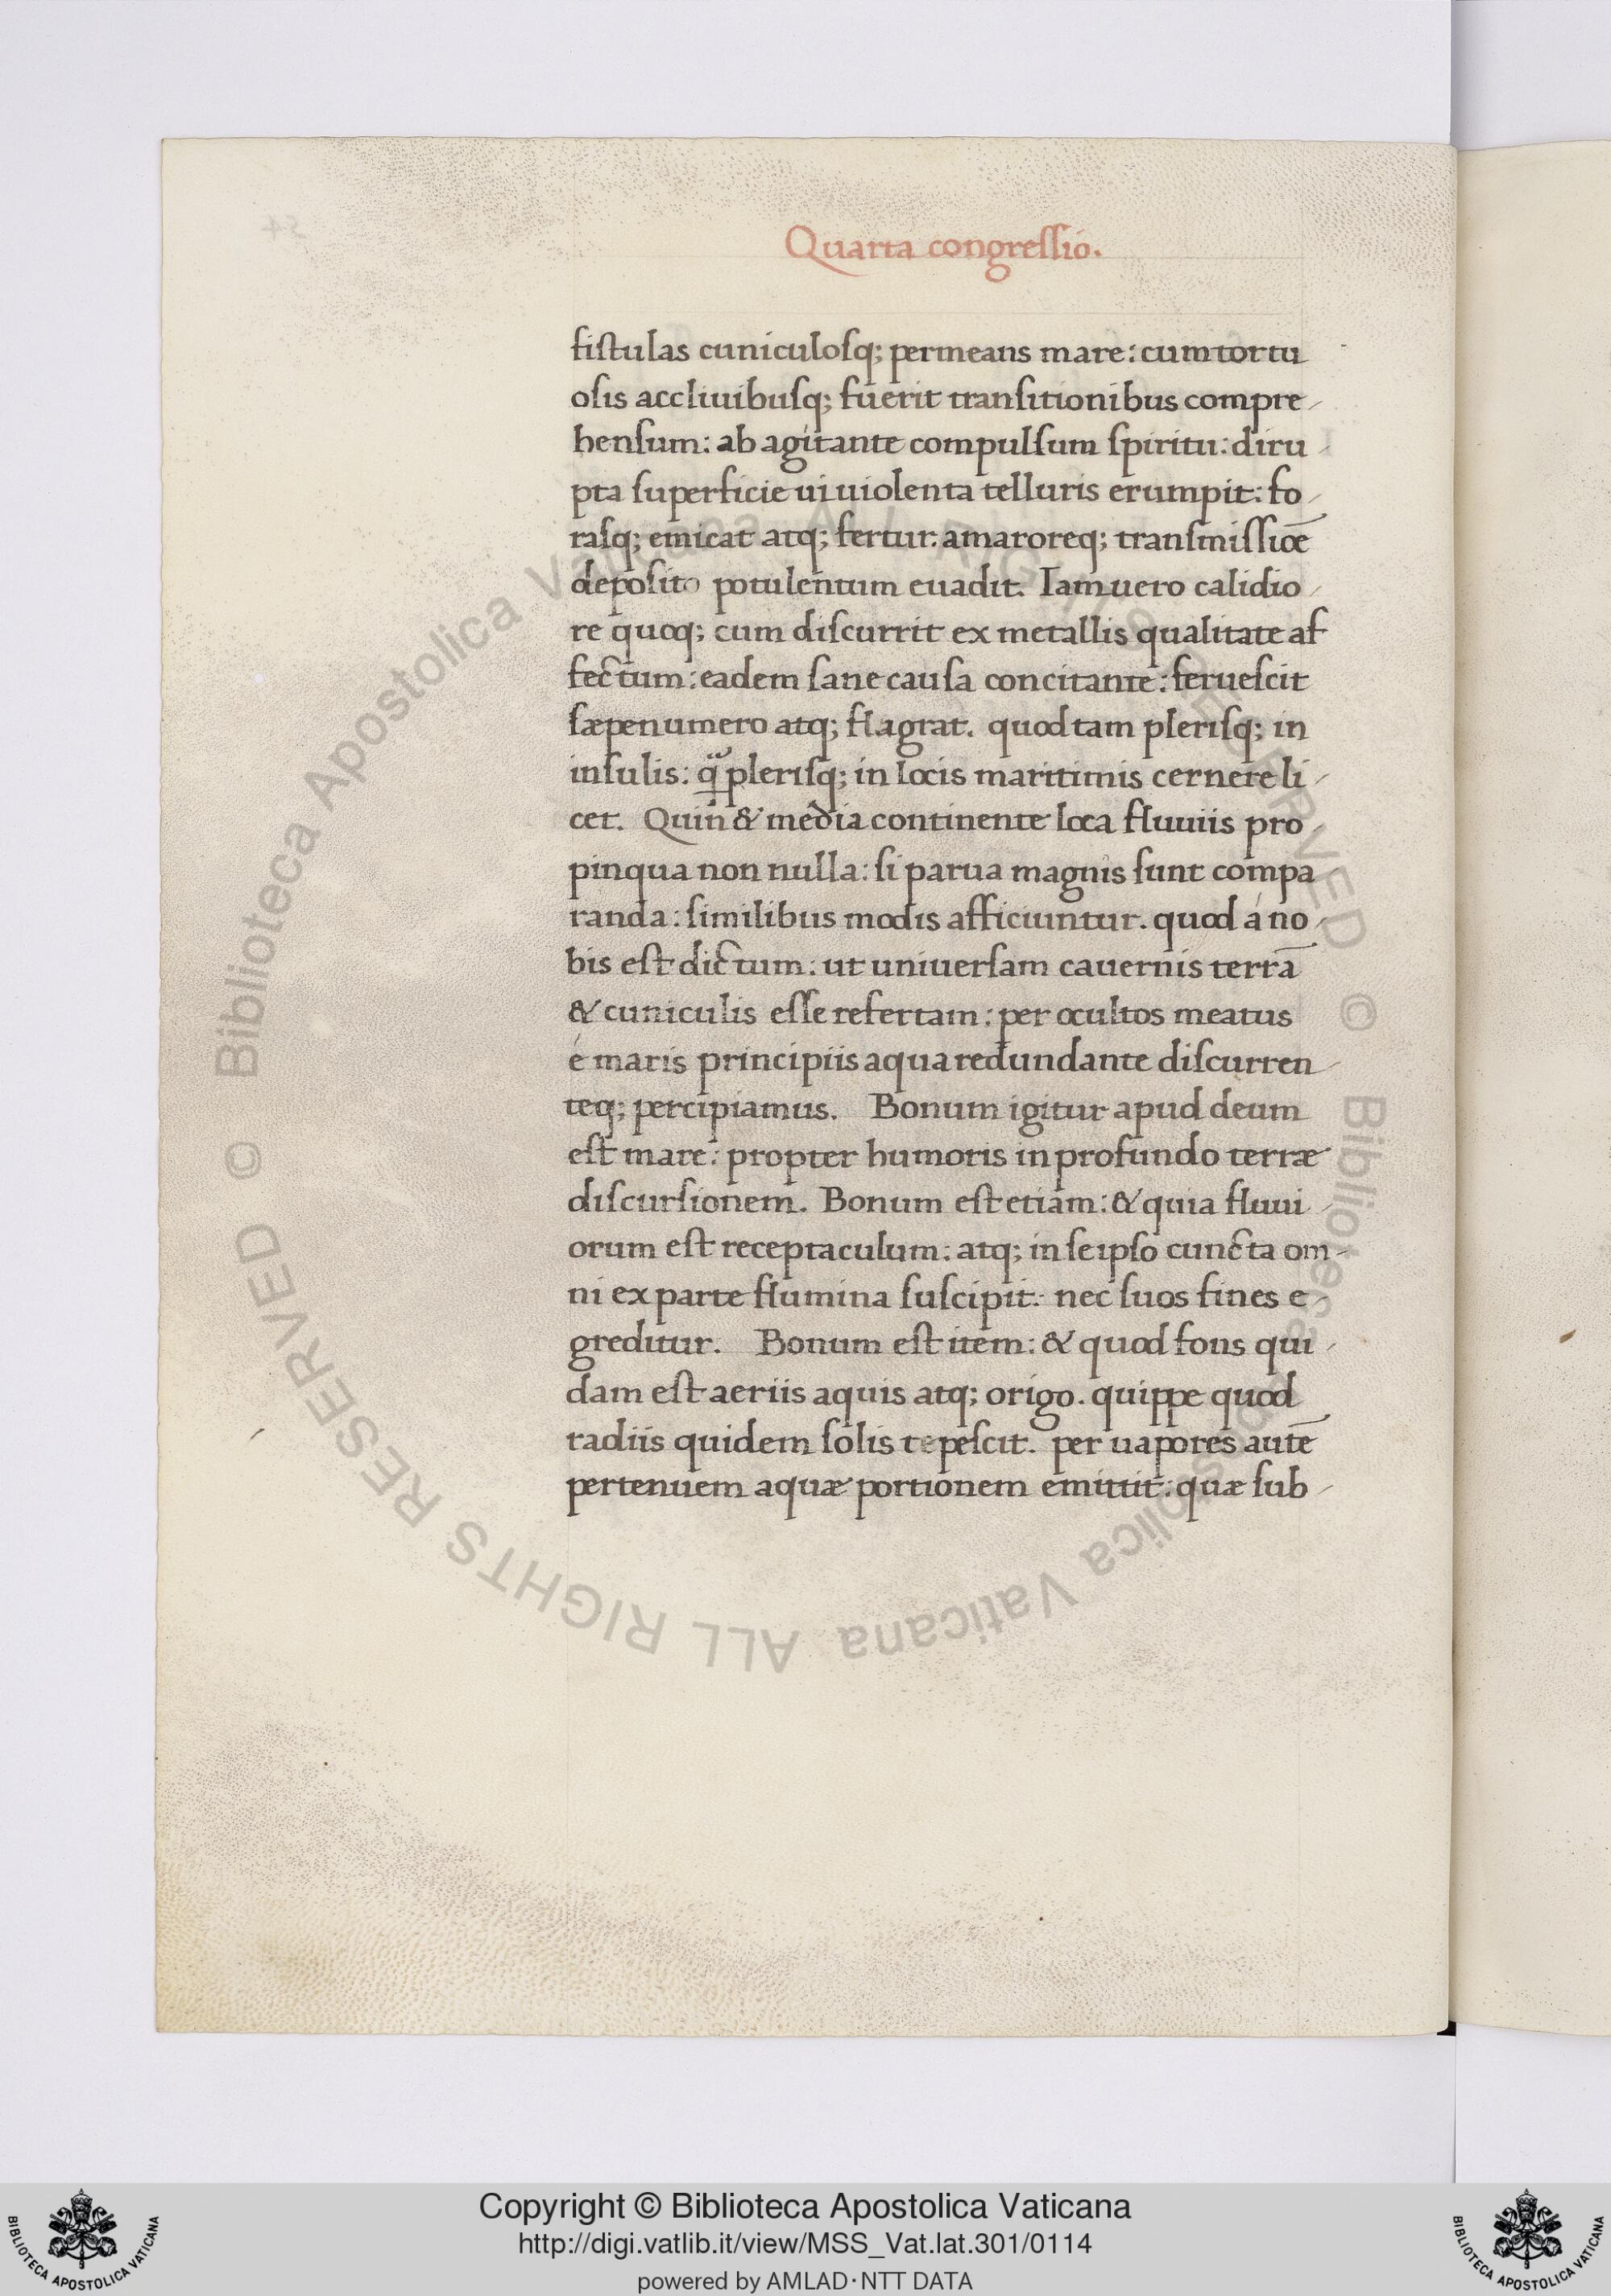 Quarta congressio.
fistulas cuniculosq; permeans mare: cum tortu
osis accliuibusq; fuerit transitionibus compre-
hensum: ab agitante compulsum spiritu: diru-
pta superficie ui uiolenta telluris erumpit: fo-
rasq; emicat atq; fertur. amaroreq; transmissiõe
deposito potulentum euadit. Iam uero calidio-
re quoq; cum discurrit ex metallis qualitate af
fectum: eadem sane causa concitante: feruescit
sæpenumero atq; flagrat. quod tam plerisq; in
insulis: q̃ plerisq; in locis maritimis cernere li-
cet. Quin & media continente loca fluuiis pro-
pinqua non nulla: si parua magnis sunt compa
randa: similibus modis afficiuntur. quod á no-
bis est dictum: ut uniuersam cauernis terrã
& cuniculis esse refertam: per ocultos meatus
é maris principiis aqua redundante discurren-
teq; percipiamus. Bonum igitur apud deum
est mare: propter humoris in profundo terræ
discursionem. Bonum est etiam: & quia fluui-
orum est receptaculum: atq; in seipso cuncta om-
ni ex parte flumina suscipit: nec suos fines e-
greditur. Bonum est item: & quod fons qui-
dam est aeriis aquis atq; origo. quippe quod
radiis quidem solis tepescit. per uapores autẽ
pertenuem aquæ portionem emittit: quæ sub-
© Biblioteca Apostolica Vaticana ALL RIGHTS RESERVED © Biblioteca Apostolica Vaticana ALL RIGHTS RESERVED
BIBLIOTECA APOSTOLICA VATICANA
Copyright © Biblioteca Apostolica Vaticana
http://digi.vatlib.it/view/MSS_Vat.lat.301/0114
powered by AMLAD·NTT DATA
BIBLIOTECA APOSTOLICA VATICANA